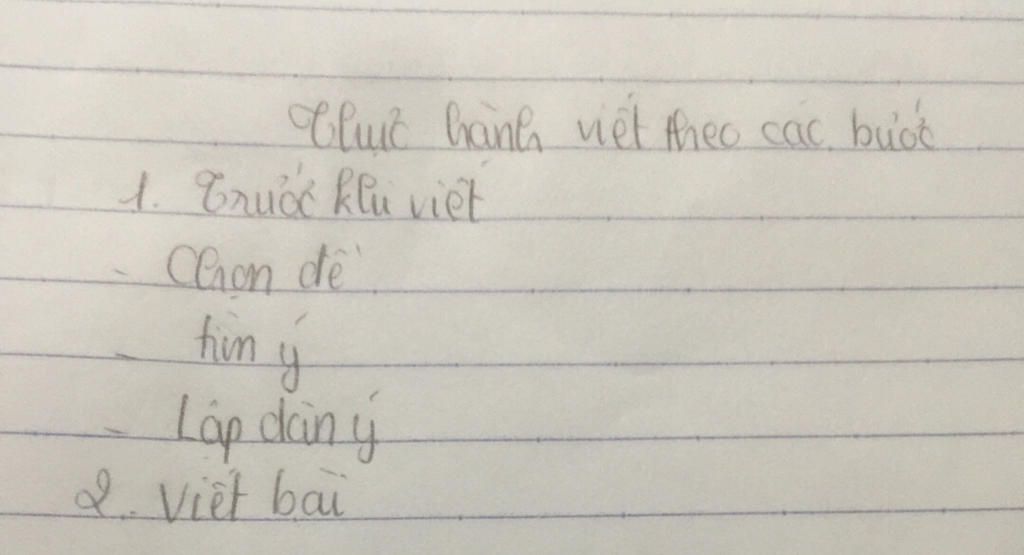 Thực hành viết theo các bước
1. Trước khi viết
- Chọn đề
- tìm ý
- Lập dàn ý
2. Viết bài